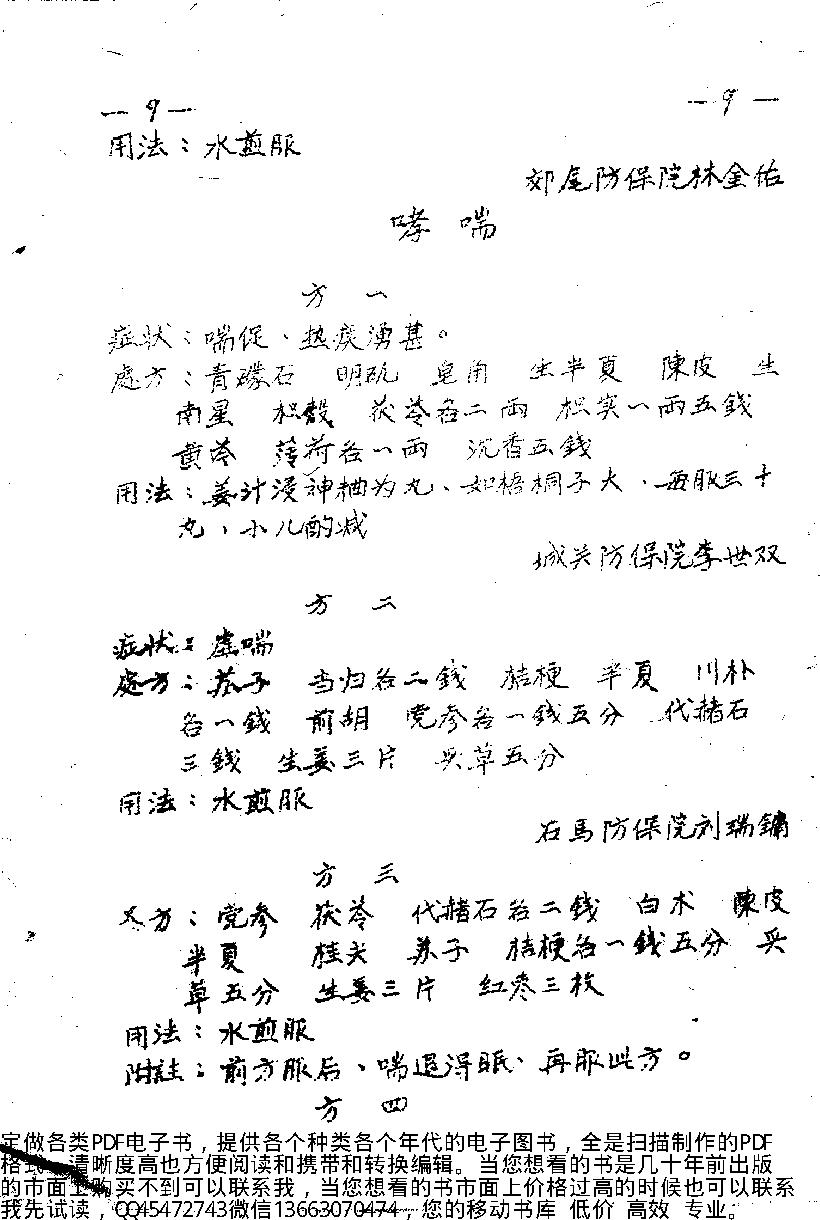 — 9 —
— 9 —
用法：水煎服
郊尾防保院林金佑
哮 喘
方 一
症状：喘促、热痰湧甚。
處方：青礞石 明矾 皂角 生半夏 陳皮 生
南星 枳殻 茯苓各二両 枳实一両五錢
黄芩 薄荷各一両 沉香五錢
用法：姜汁浸神粬为丸、如梧桐子大、每服三十
丸，小儿酌减
城关防保院李世双
方 二
症状：虚喘
處方：苏子 当归各二錢 桔梗 半夏 川朴
各一錢 前胡 党参各一錢五分 代赭石
三錢 生姜三片 炙草五分
用法：水煎服
石馬防保院刘瑞鏞
方 三
又方：党参 茯苓 代赭石各二錢 白术 陳皮
半夏 桂尖 苏子 桔梗各一錢五分 炙
草五分 生姜三片 红枣三枚
用法：水煎服
附註：前方服后、喘退得眠、再服此方。
方 四
定做各类PDF电子书，提供各个种类各个年代的电子图书，全是扫描制作的PDF
格式，清晰度高也方便阅读和携带和转换编辑。当您想看的书是几十年前出版
的市面上购买不到可以联系我，当您想看的书市面上价格过高的时候也可以联系
我先试读，QQ45472743微信13663070474，您的移动书库 低价 高效 专业。